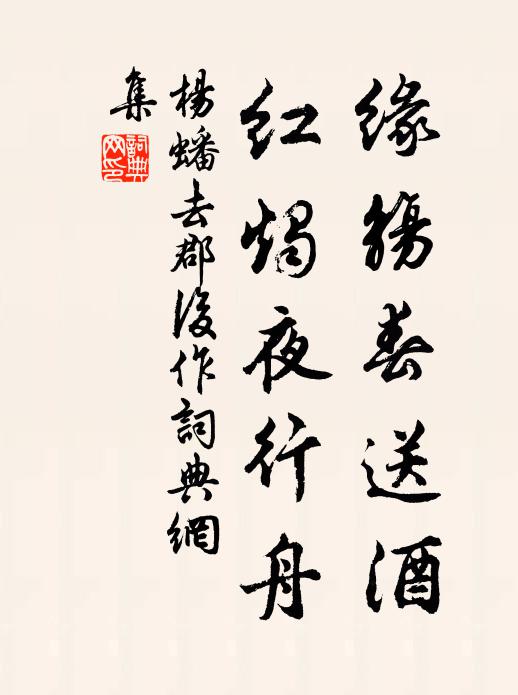 緣觴春送酒
紅燭夜行舟
楊蟠去郡後作詞典網
集
詞典網印